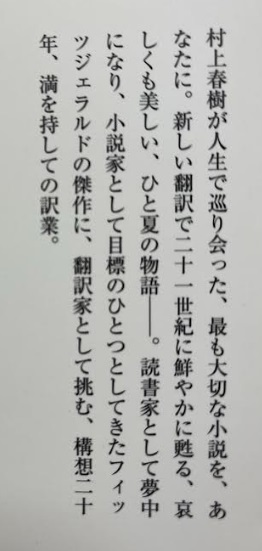 村上春樹が人生で巡り会った、最も大切な小説を、あ
なたに。新しい翻訳で二十一世紀に鮮やかに甦る、哀
しくも美しい、ひと夏の物語――。読書家として夢中
になり、小説家として目標のひとつとしてきたフィッ
ツジェラルドの傑作に、翻訳家として挑む、構想二十
年、満を持しての訳業。